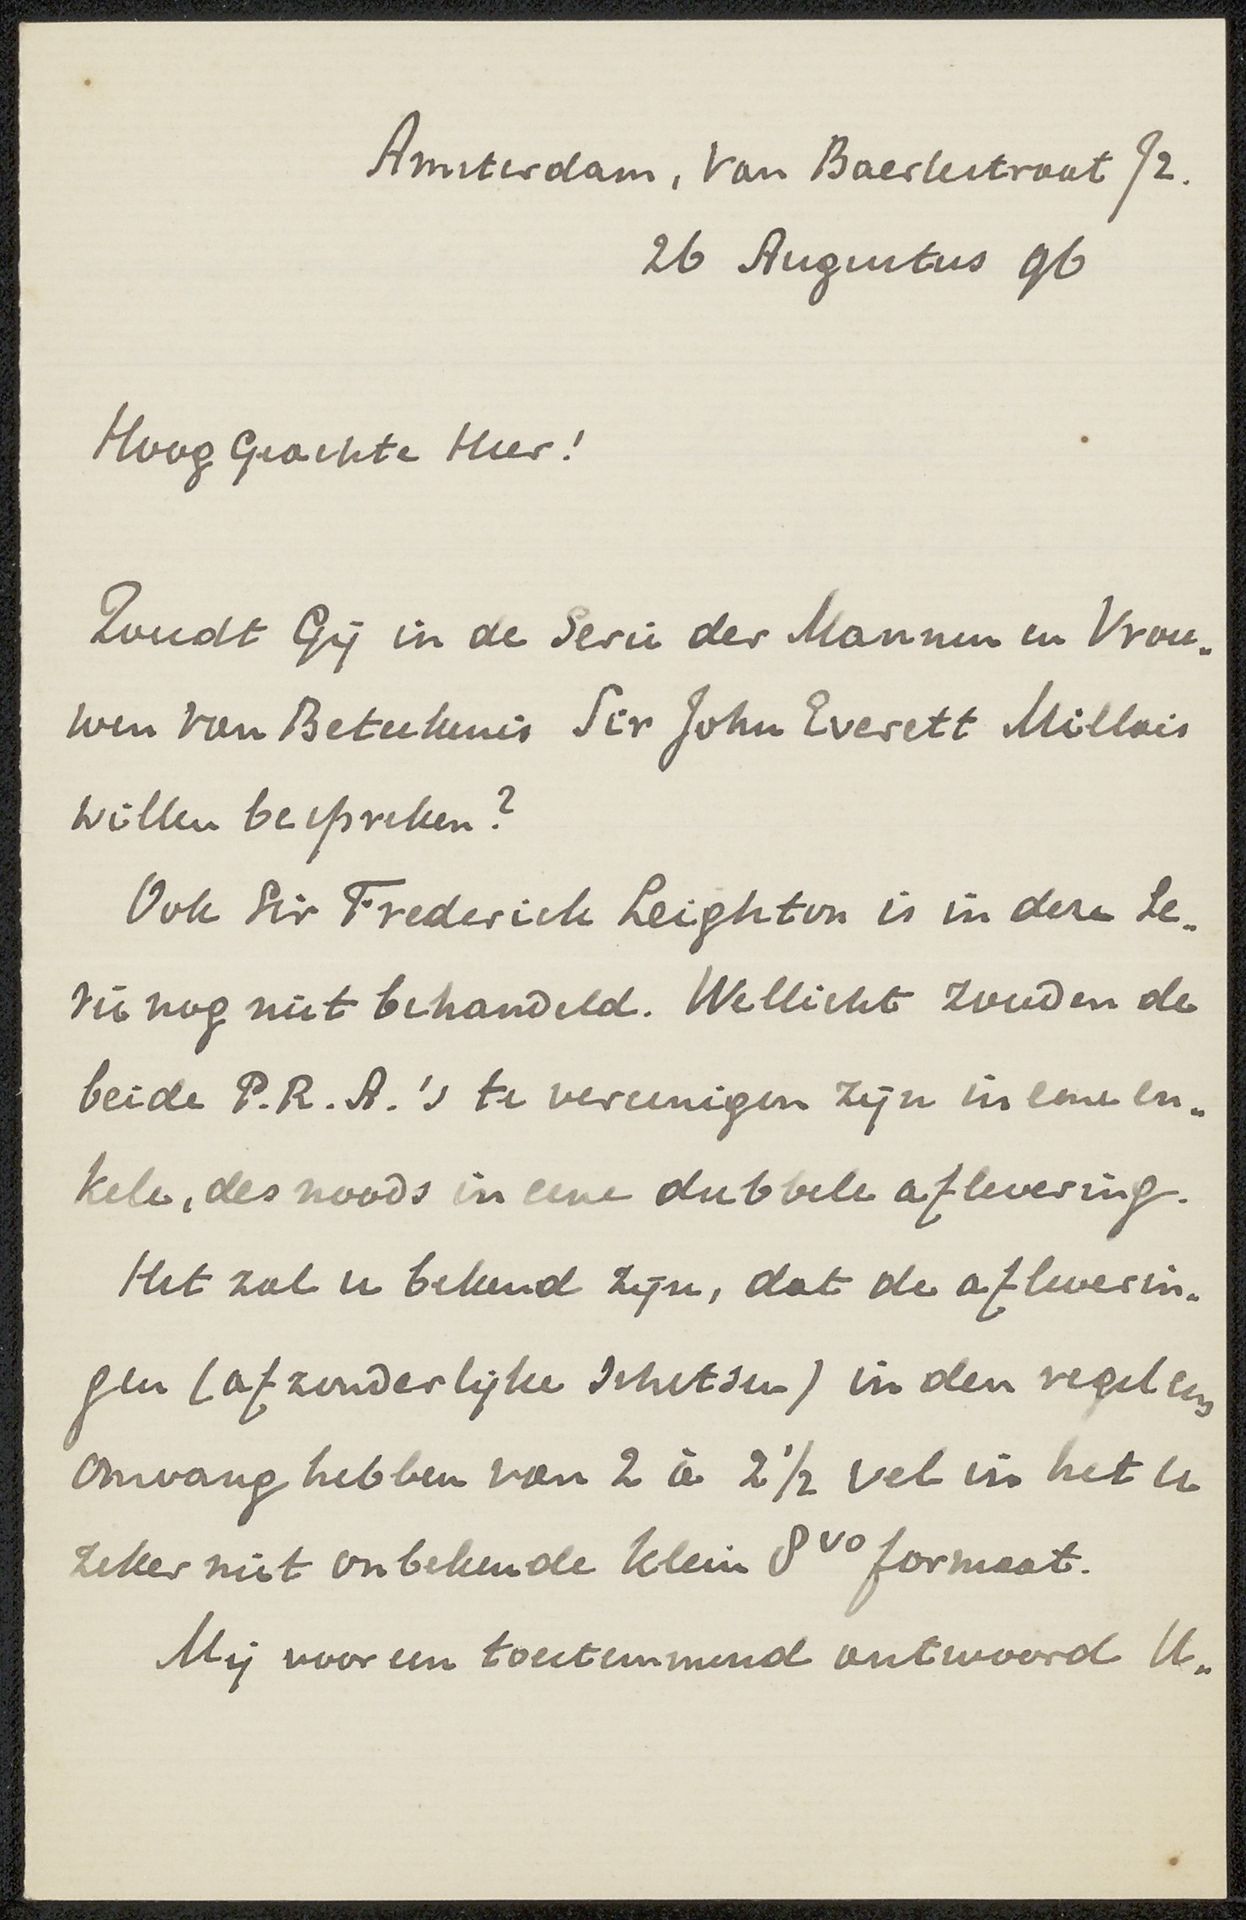 Amsterdam, Van Baerlestraat 72.
26 Augustus 96
Hoog Geachte Heer!
Zoudt Gij in de Serie der Mannen en Vrou-
wen van Beteekenis Sir John Everett Millais
willen bespreken?
Ook Sir Frederick Leighton is in deze Se-
rie nog niet behandeld. Wellicht zouden de
beide P.R.A.'s te vereenigen zijn in eene en-
kele, des noods in eene dubbele aflevering.
Het zal u bekend zijn, dat de afleverin-
gen (afzonderlijke schetsen) in den regel een
omvang hebben van 2 à 2 1/2 vel in het u
zeker niet onbekende klein 8vo formaat.
Mij voor een toestemmend antwoord U-